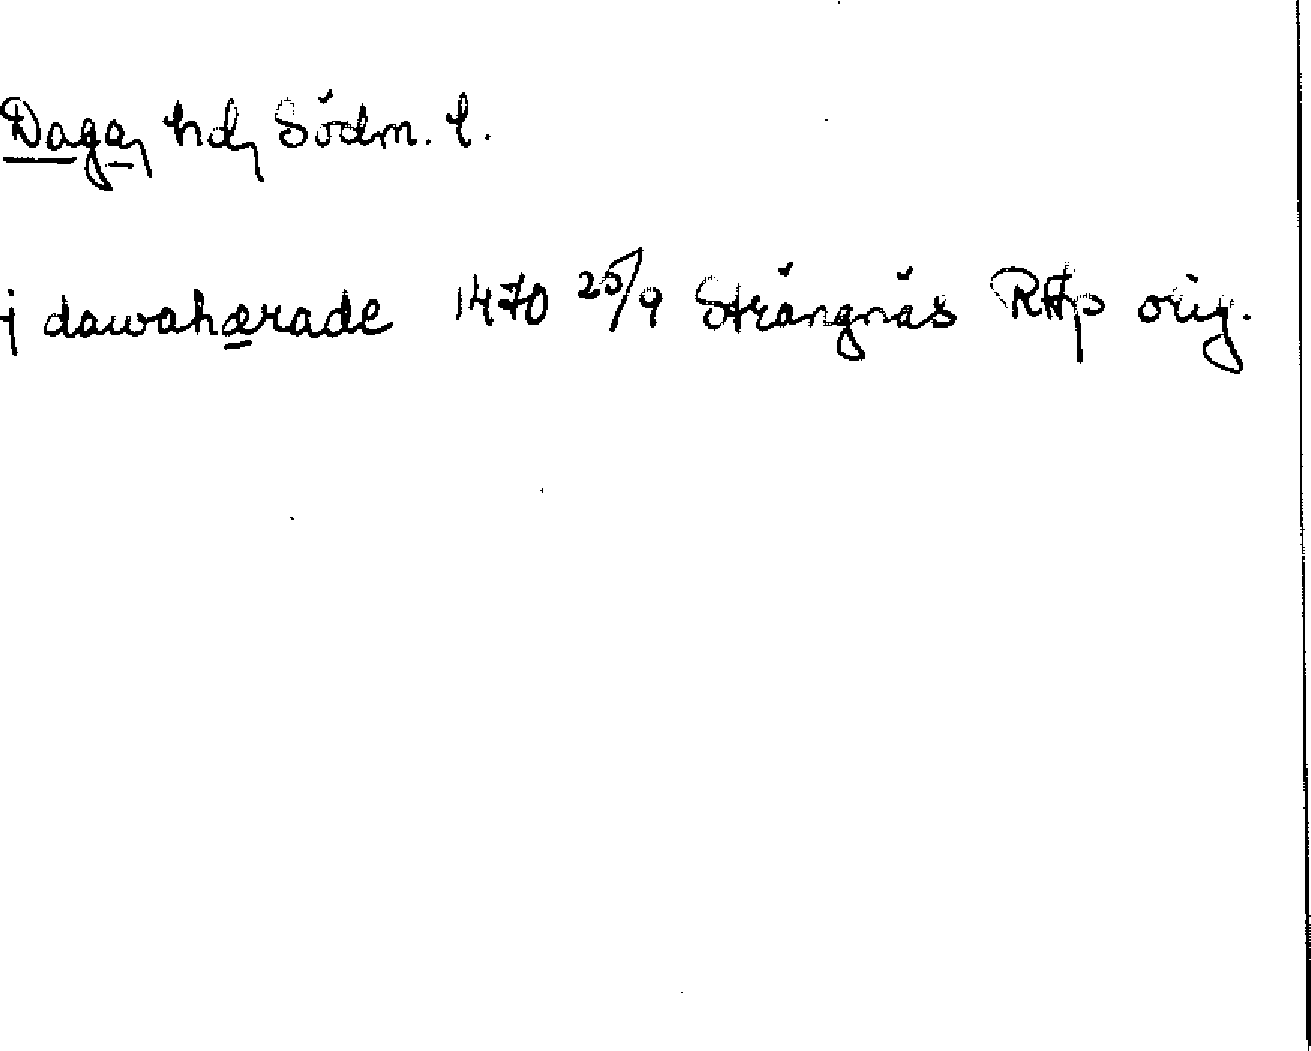 Daga, hd, Södm. l.
j dawahærade 1470 25/9 Strängnäs RAp orig.